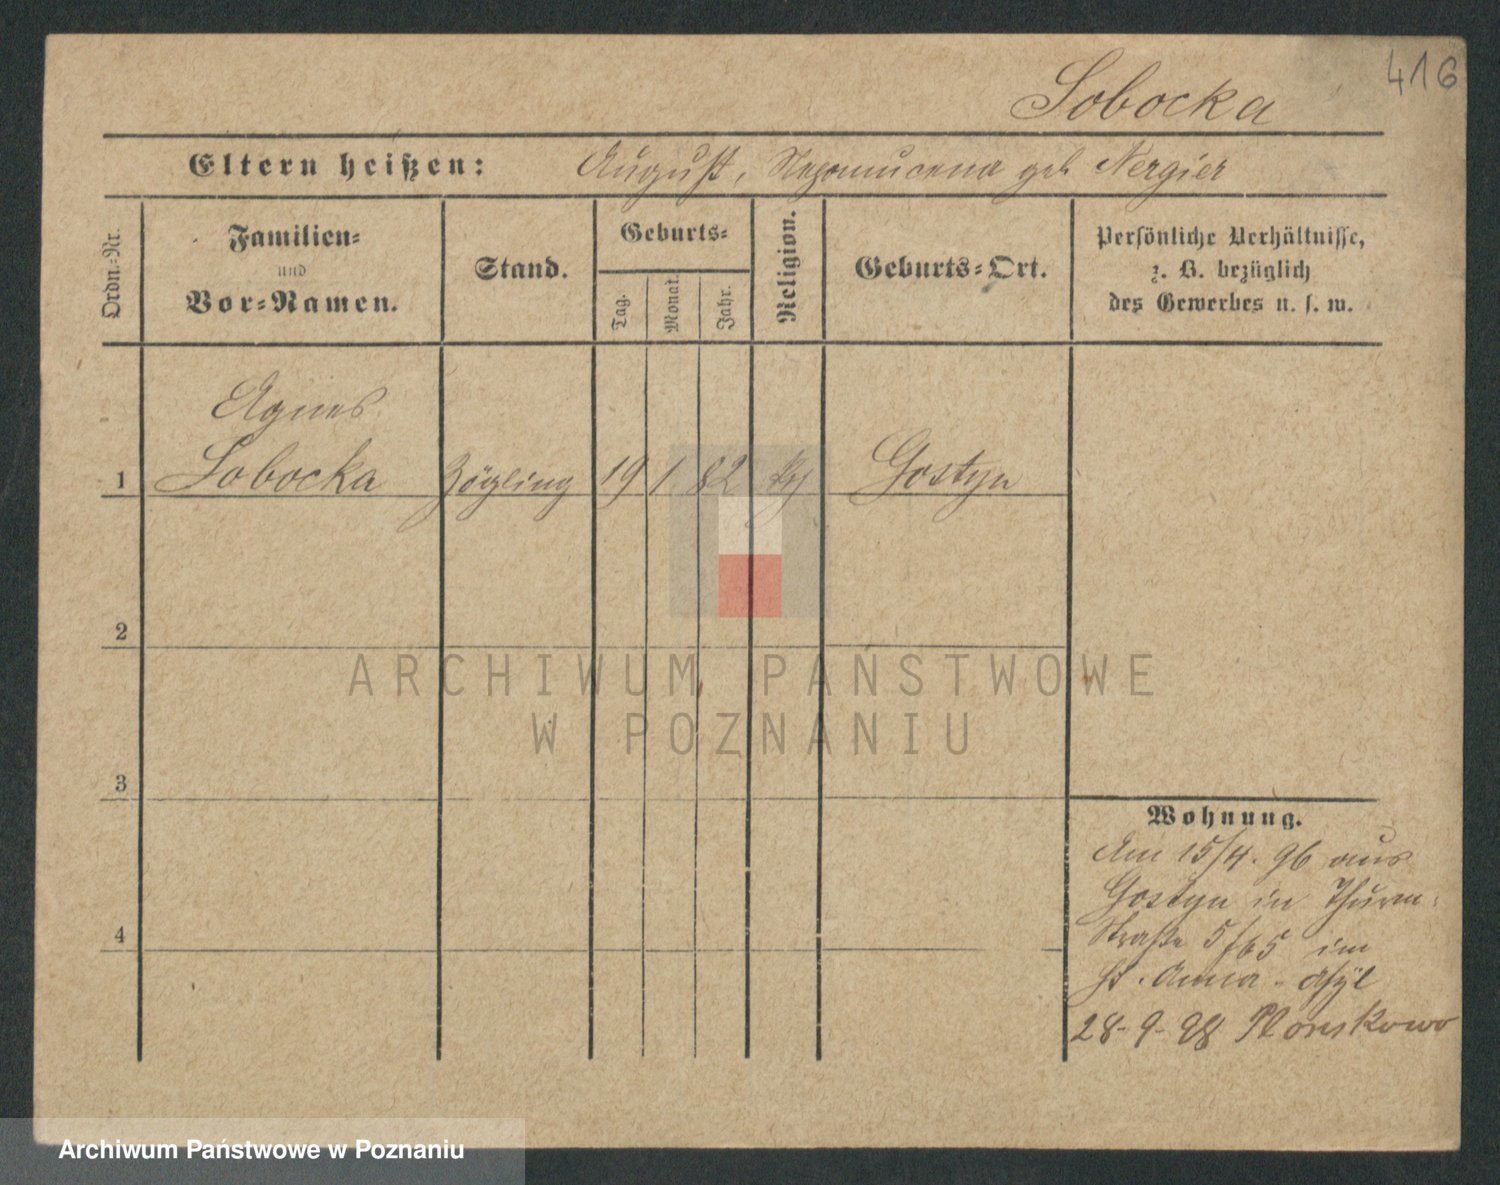 416
Sobocka
Eltern heißen: August, Nepomucena geb Nergier
Ordn.-Nr.
Familien-
und
Vor-Namen.
Stand.
Geburts-
Tag.
Monat.
Jahr.
Religion.
Geburts-Ort.
Persönliche Verhältnisse,
z. B. bezüglich
des Gewerbes u. s. w.
Agnes
1 Sobocka Zögling 19 1 82 Gostyn
2
ARCHIWUM PAŃSTWOWE
W POZNANIU
3
Wohnung.
Am 15/4. 96 aus
Gostyn in Thurm-
Straße 5/65 im
St. Anna-Asyl
4
28-9-98
Archiwum Państwowe w Poznaniu